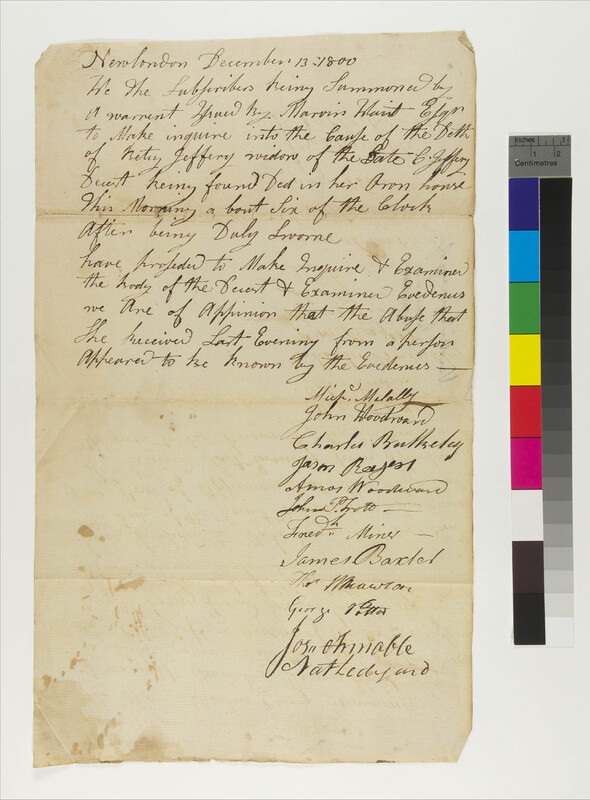 Newlondon December 13: 1800
We the Subscribers being Summoned by
a warrent Issued by Marvin Wait Esqr
to Make inquire into the Cause of the Deth
of Betsy Jeffery widow of the Late C. Jeffery
Decest being found Ded in her Own house
this Morning a bout Six of the Clock
After being Duly Sworne
have proseded to Make Inquire & Examined
the body of the Decest & Examined Evedences
we Are of Appinion that the Abuse that
She Received Last Evening from a person
Appeared to be known by the Evedences
Melally
John Woodward
Charles Bulkeley
Jason Rogers
Amos Woodward
John P. Trott
Fredk. Miner
James Baxter
Thos
George Potter
Jos:
Nat Ledyard
Inches 1 2
Centimetres